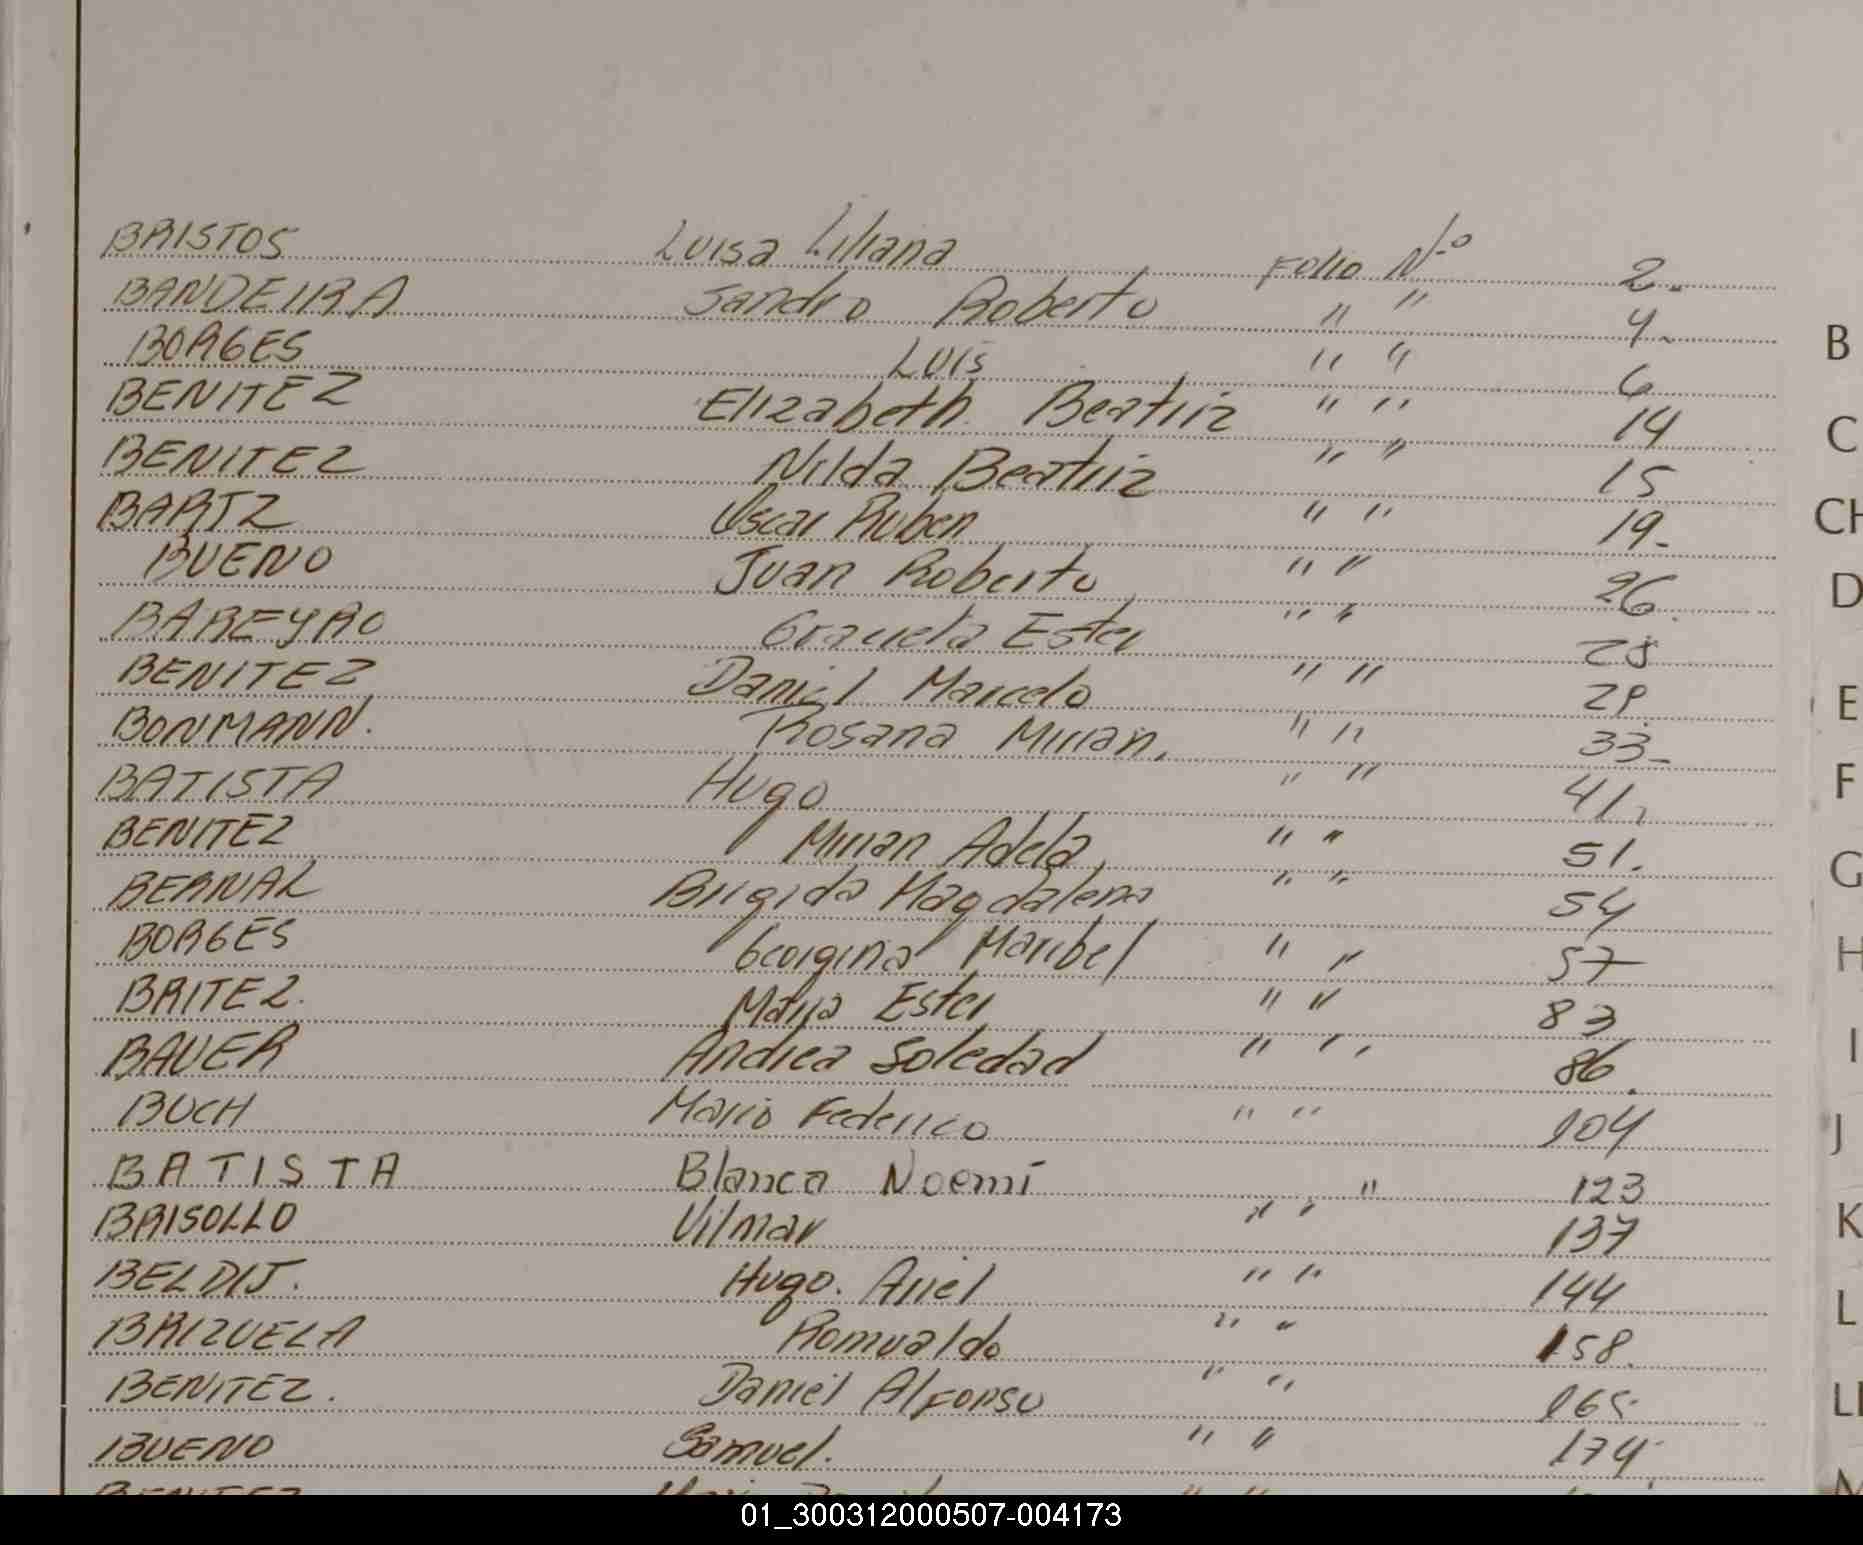 BRISTOS Luisa Liliana Folio Nº 2.
BANDEIRA Sandro Roberto " " 4.
BORGES Luis " " 6
BENITEZ Elizabeth Beatriz " " 14
BENITEZ Nilda Beatriz " " 15
BARTZ Oscar Ruben " " 19-
BUENO Juan Roberto " " 26.
BAREYRO Graciela Ester " " 28
BENITEZ Daniel Marcelo " " 29.
BONMANN. Rosana Mirian. " " 33-
BATISTA Hugo " " 41,
BENITEZ Mirian Adela, " " 51.
BERNAL Brigida Magdalena " " 54
BORGES Georgina Maribel " " 57
BRITEZ. Maria Ester " " 83
BAUER Andrea Soledad " " 86.
BUCH Mario Federico " " 104
BATISTA Blanca Noemí " 123
BRISOLLO Vilmar " " 137
BELDIJ. Hugo. Ariel " " 144
BRIZUELA Romualdo " " 158.
BENITEZ. Daniel Alfonso " " 165.
BUENO Samuel. " " 174.
BENITEZ
B
C
CH
D
E
F
G
H
I
J
K
L
LL
M
01_300312000507-004173